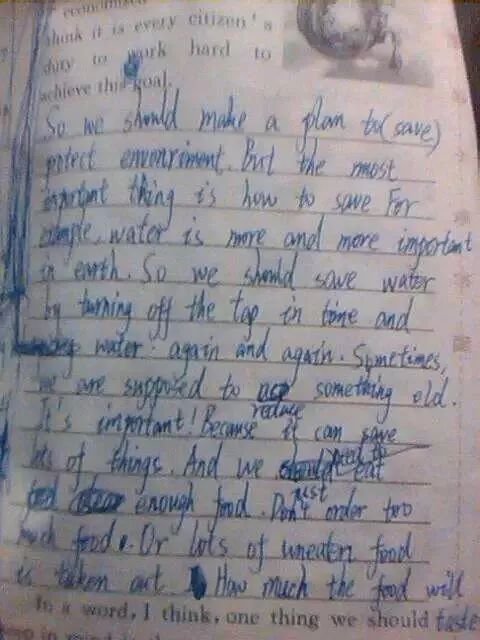 economised
think it is every citizen's
duty to work hard to
achieve this goal.
So we should make a plan to (save)
potect envenriment. But the most
important thing is how to save For
example, water is more and more important
in earth. So we should save water
by turning off the tap in time and
water again and again. Sometimes,
we are supposed to something old.
reduce
It's important! Because it can save
need to
lots of things. And we should eat
just
enough food. Don't order too
much food. Or lots of uneaten food
is taken out How much the food will
In a word, I think, one thing we should taste